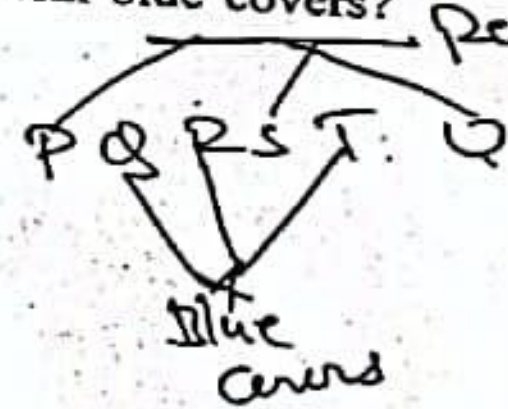 blue covers?
P Q R S T. U
Blue
covers